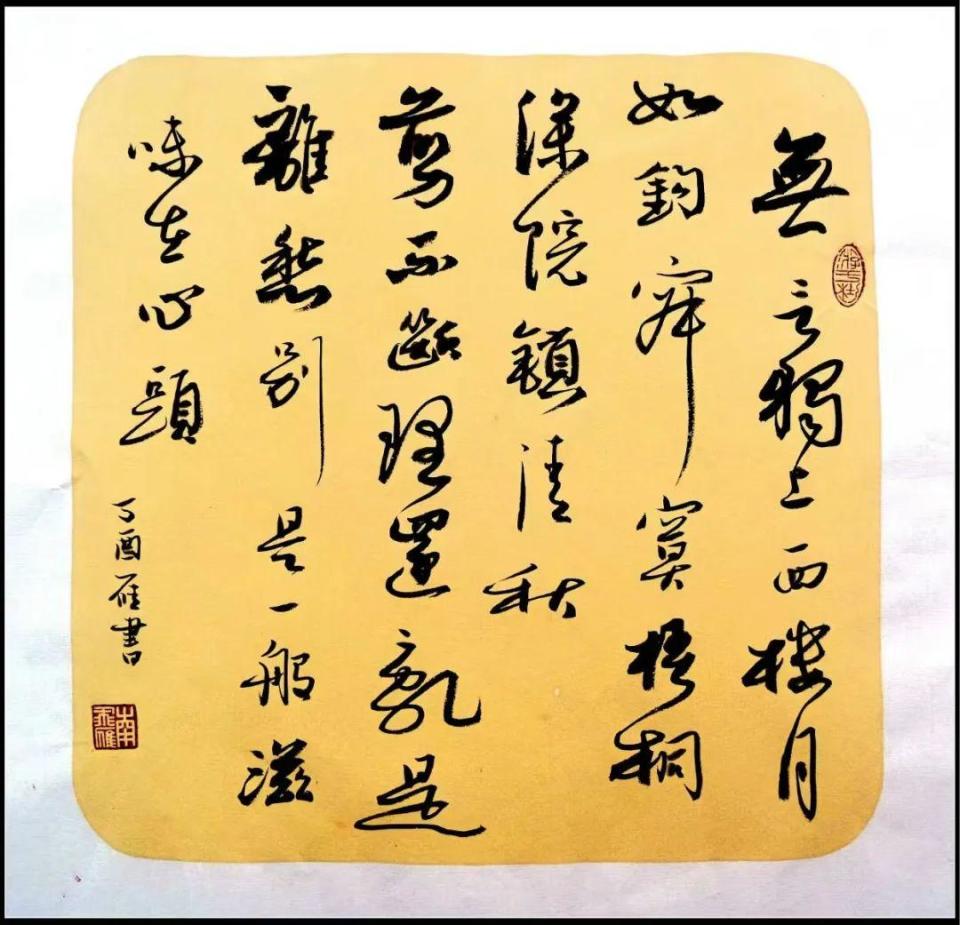 無言獨上西樓月
如鈎寂寞梧桐
深院鎖清秋
剪不斷理還亂是
離愁別是一般滋
味在心頭
丁酉雁書
南飛雁